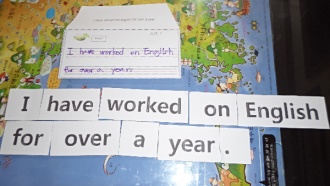 I have worked on English
for over a years
I have worked on English
for over a year.